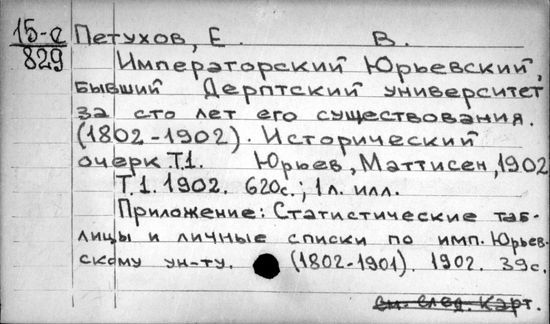 15-е
829
Петухов, Е. В.
Императорский Юрьевский,
бывший Дерптский университет
за сто лет его существования.
(1802-1902). Исторический
очерк Т.1. Юрьев, Маттисен, 1902
Т.1. 1902. 620с.; 1л. илл.
Приложение: Статистические таб-
лицы и личные списки по имп. Юрьев-
скому ун-ту. (1802-1901). 1902. 39с.
см. след. карт.